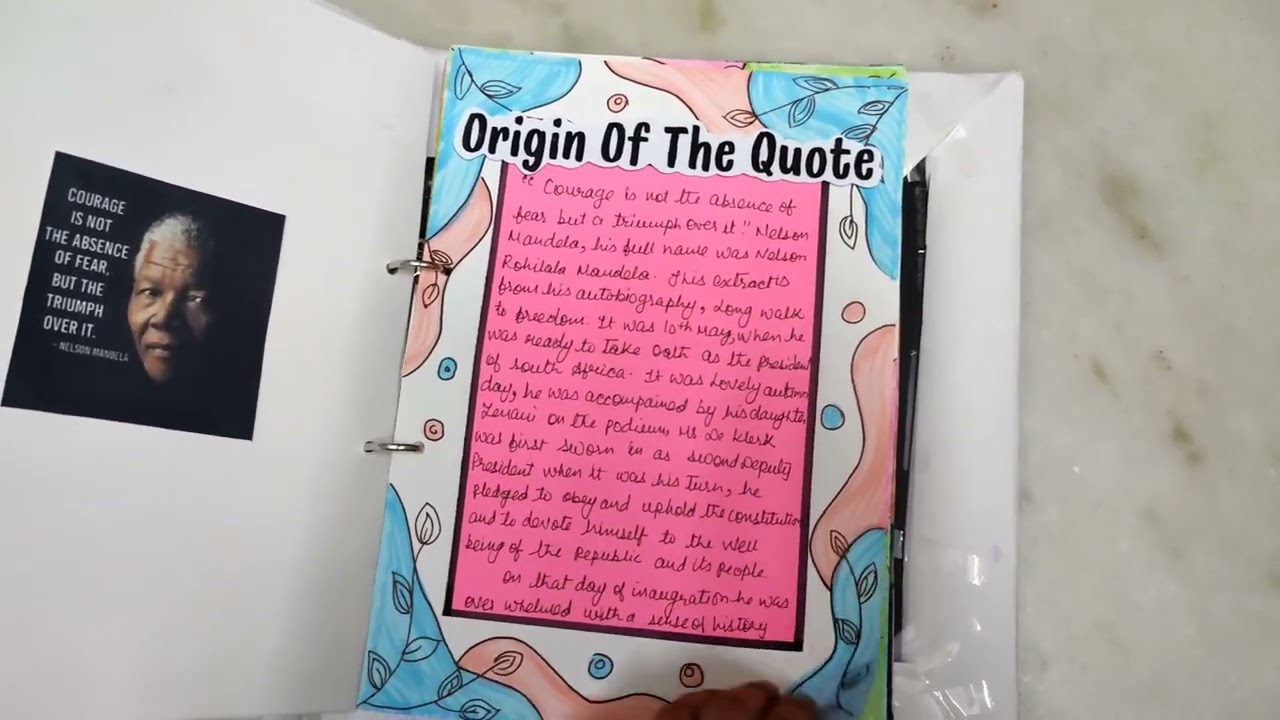 COURAGE
IS NOT
THE ABSENCE
OF FEAR,
BUT THE
TRIUMPH
OVER IT.
- NELSON MANDELA
Origin Of The Quote
"Courage is not the absence of
fear but a triumph over it." Nelson
Mandela, his full name was Nelson
Rohilala Mandela. This extract is
from his autobiography, Long walk
to freedom. It was 10th May, when he
was ready to take oath as the president
of south Africa. It was lovely autumn
day, he was accompained by his daughter
Zenani on the podium, Mr. De Klerk
was first sworn in as second Deputy
President when it was his turn, he
pledged to obey and uphold the constitution
and to devote himself to the well
being of the Republic and its people.
on that day of inaugration he was
over whelmed with a sense of history